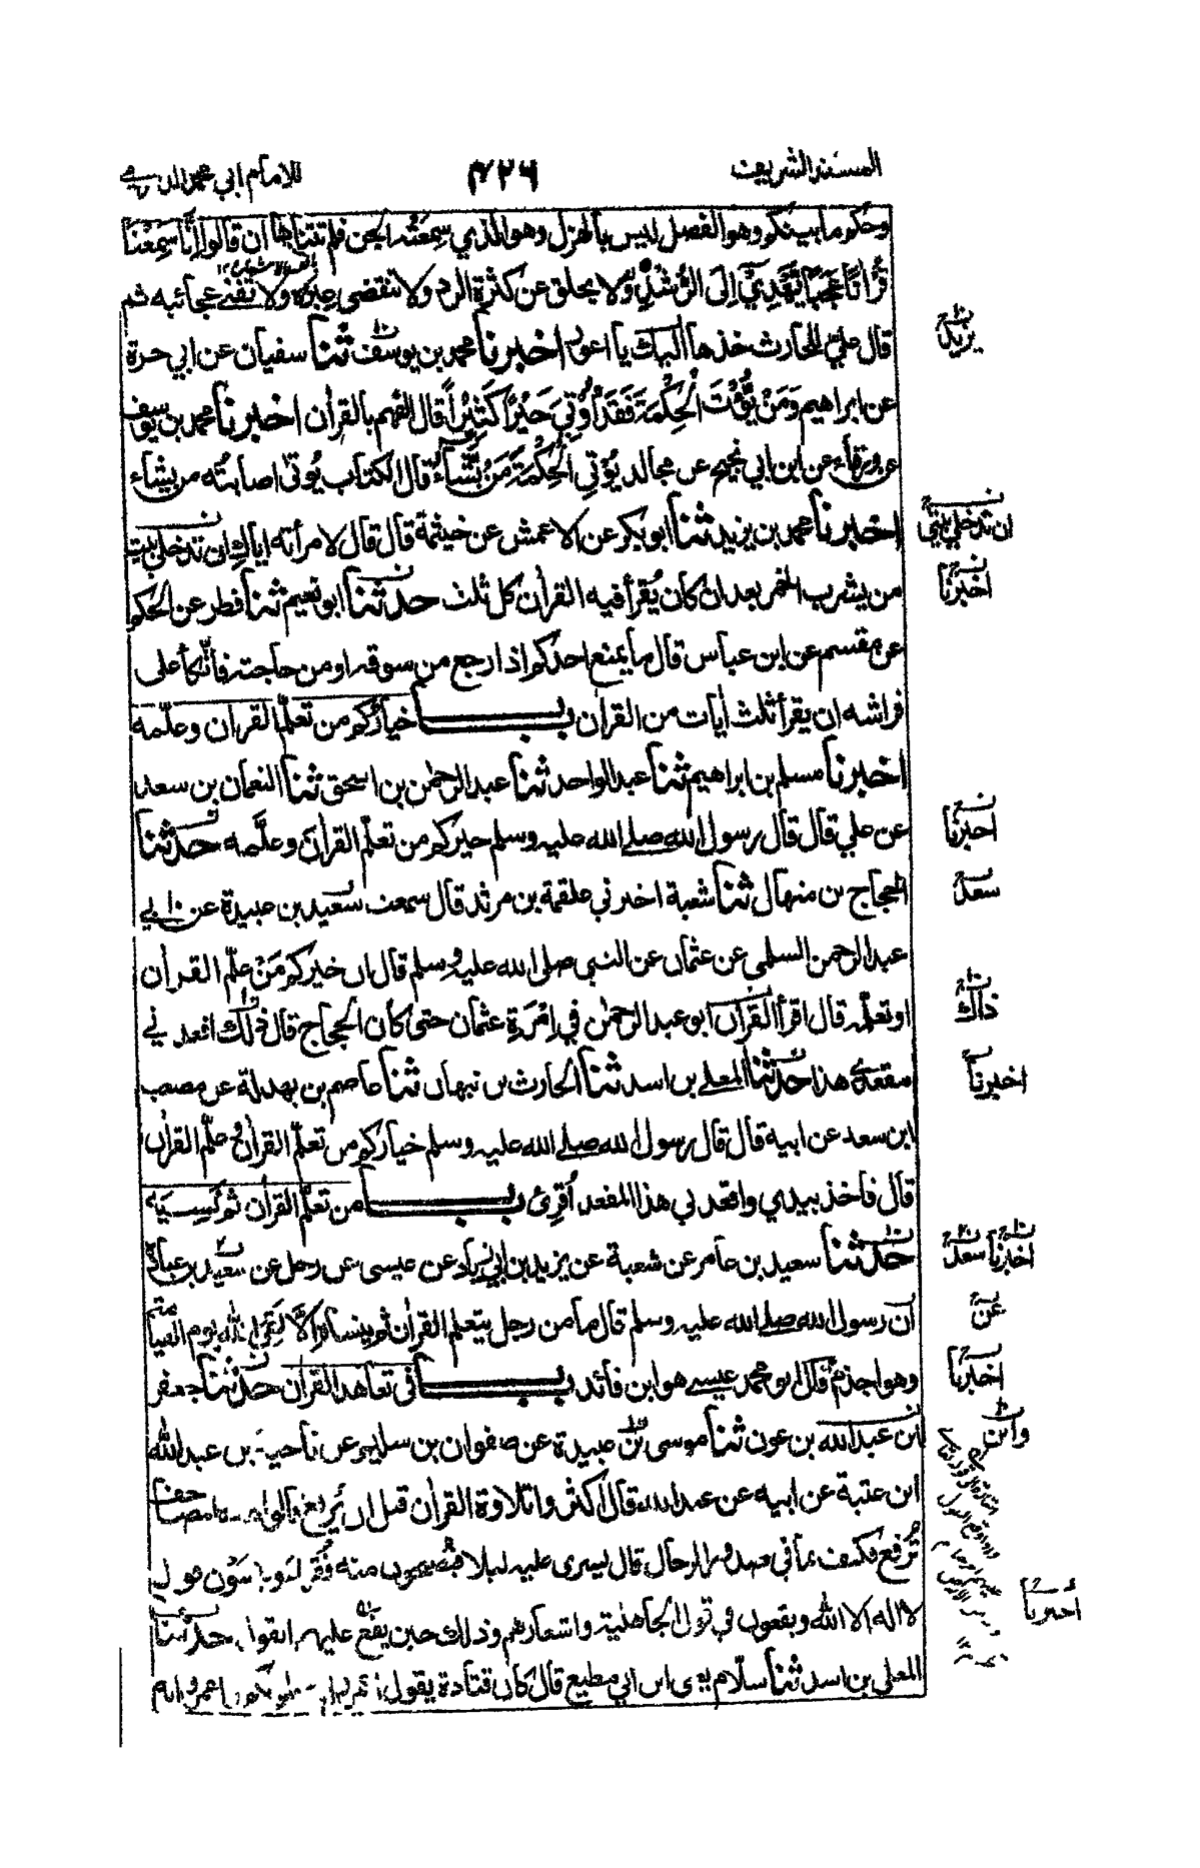 المسند الشريف
٤٢٦
للامام ابي محمد الدارمي
وحكم ما بينكم وهو الفصل ليس بالهزل وهو الذي سمعته الجن فلم تتناها ان قالوا اِنَّا سَمِعْنَا
قُرْاٰنًا عَجَبًا يَّهْدِيْ اِلَى الرُّشْدِ ولا يخلق عن كثرة الرد ولا تنقضي عبره ولا تفنى عجائبه ثم
قال علي للحارث خذها اليك يا اعور اخبرنا محمد بن يوسف ثنا سفيان عن ابي حمزة
عن ابراهيم وَمَنْ يُّؤْتَ الْحِكْمَةَ فَقَدْ اُوْتِيَ خَيْرًا كَثِيْرًا قال الفهم بالقراٰن اخبرنا محمد بن يوسف
عن ورقاء عن ابن ابي نجيح عن مجاهد يُؤْتِي الْحِكْمَةَ مَنْ يَّشَاءُ قال الكتاب يُوتى اصابته من يشاء
اخبرنا محمد بن يزيد ثنا ابو بكر عن الاعمش عن خيثمة قال قال لامرأته اياك ان تدخلي بيتي
من يشرب الخمر بعد ان كان يُقرأ فيه القراٰن كل ثلث حدثنا ابو نعيم ثنا فطر عن الحكم
عن مقسم عن ابن عباس قال ما يمنع احدكم اذا رجع من سوقه او من حاجته فاتكأ على
فراشه ان يقرأ ثلث اٰيات من القراٰن باب خياركم من تعلّم القراٰن وعلّمه
اخبرنا مسلم بن ابراهيم ثنا عبد الواحد ثنا عبد الرحمٰن بن اسحٰق ثنا النعمان بن سعد
عن علي قال قال رسول الله صلى الله عليه وسلم خيركم من تعلّم القراٰن وعلَّمه حدثنا
الحجاج بن منهال ثنا شعبة اخبرني علقمة بن مرثد قال سمعت سعيد بن عبيدة عن ابي
عبد الرحمن السلمي عن عثمان عن النبي صلى الله عليه وسلم قال ان خيركم مَنْ علّم القراٰن
او تعلّمه قال اقرأ القراٰن ابو عبد الرحمٰن في اِمْرَةِ عثمان حتى كان الحجاج قال ذلك اقعدني
مقعدي هذا حدثنا المعلى بن اسد ثنا الحارث بن نبهان ثنا عاصم بن بهدلة عن مصعب
ابن سعد عن ابيه قال قال رسول الله صلى الله عليه وسلم خياركم من تعلّم القراٰن وعلّم القراٰن
قال فاخذ بيدي واقعدني هذا المقعد اُقرِئُ باب من تعلّم القراٰن ثم نَسِيَهُ
حدثنا سعيد بن عامر عن شعبة عن يزيد بن ابي زياد عن عيسى عن رجل عن سعيد بن عبادة
ان رسول الله صلى الله عليه وسلم قال ما من رجل يتعلم القراٰن ثم ينساه اِلَّا لقي الله يوم القيامة
وهو اجذم قال ابو محمد عيسى هو ابن فائد باب في تعاهد القراٰن حدثنا جعفر
ابن عبد الله بن عون ثنا موسى بن عبيدة عن صفوان بن سليم عن ناجية بن عبد الله
ابن عتبة عن ابيه عن عبد الله قال اكثروا تلاوة القراٰن قبل ان يُرفع قالوا هذه المصاحف
تُرفع فكيف بما في صدور الرجال قال يسرى عليه ليلا فيصبحون منه فُقراء وينسون قول
لا اله الا الله ويقعون في قول الجاهلية واشعارهم وذلك حين يقع عليهم القول حدثنا
المعلى بن اسد ثنا سلّام يعني ابن ابي مطيع قال كان قتادة يقول اعمروا به
يزيد
ان تدخلي بيتي
اخبرنا
اخبرنا
سعد
ذاك
اخبرنا
اخبرنا سعد
عن
اخبرنا
وابن
اخبرنا